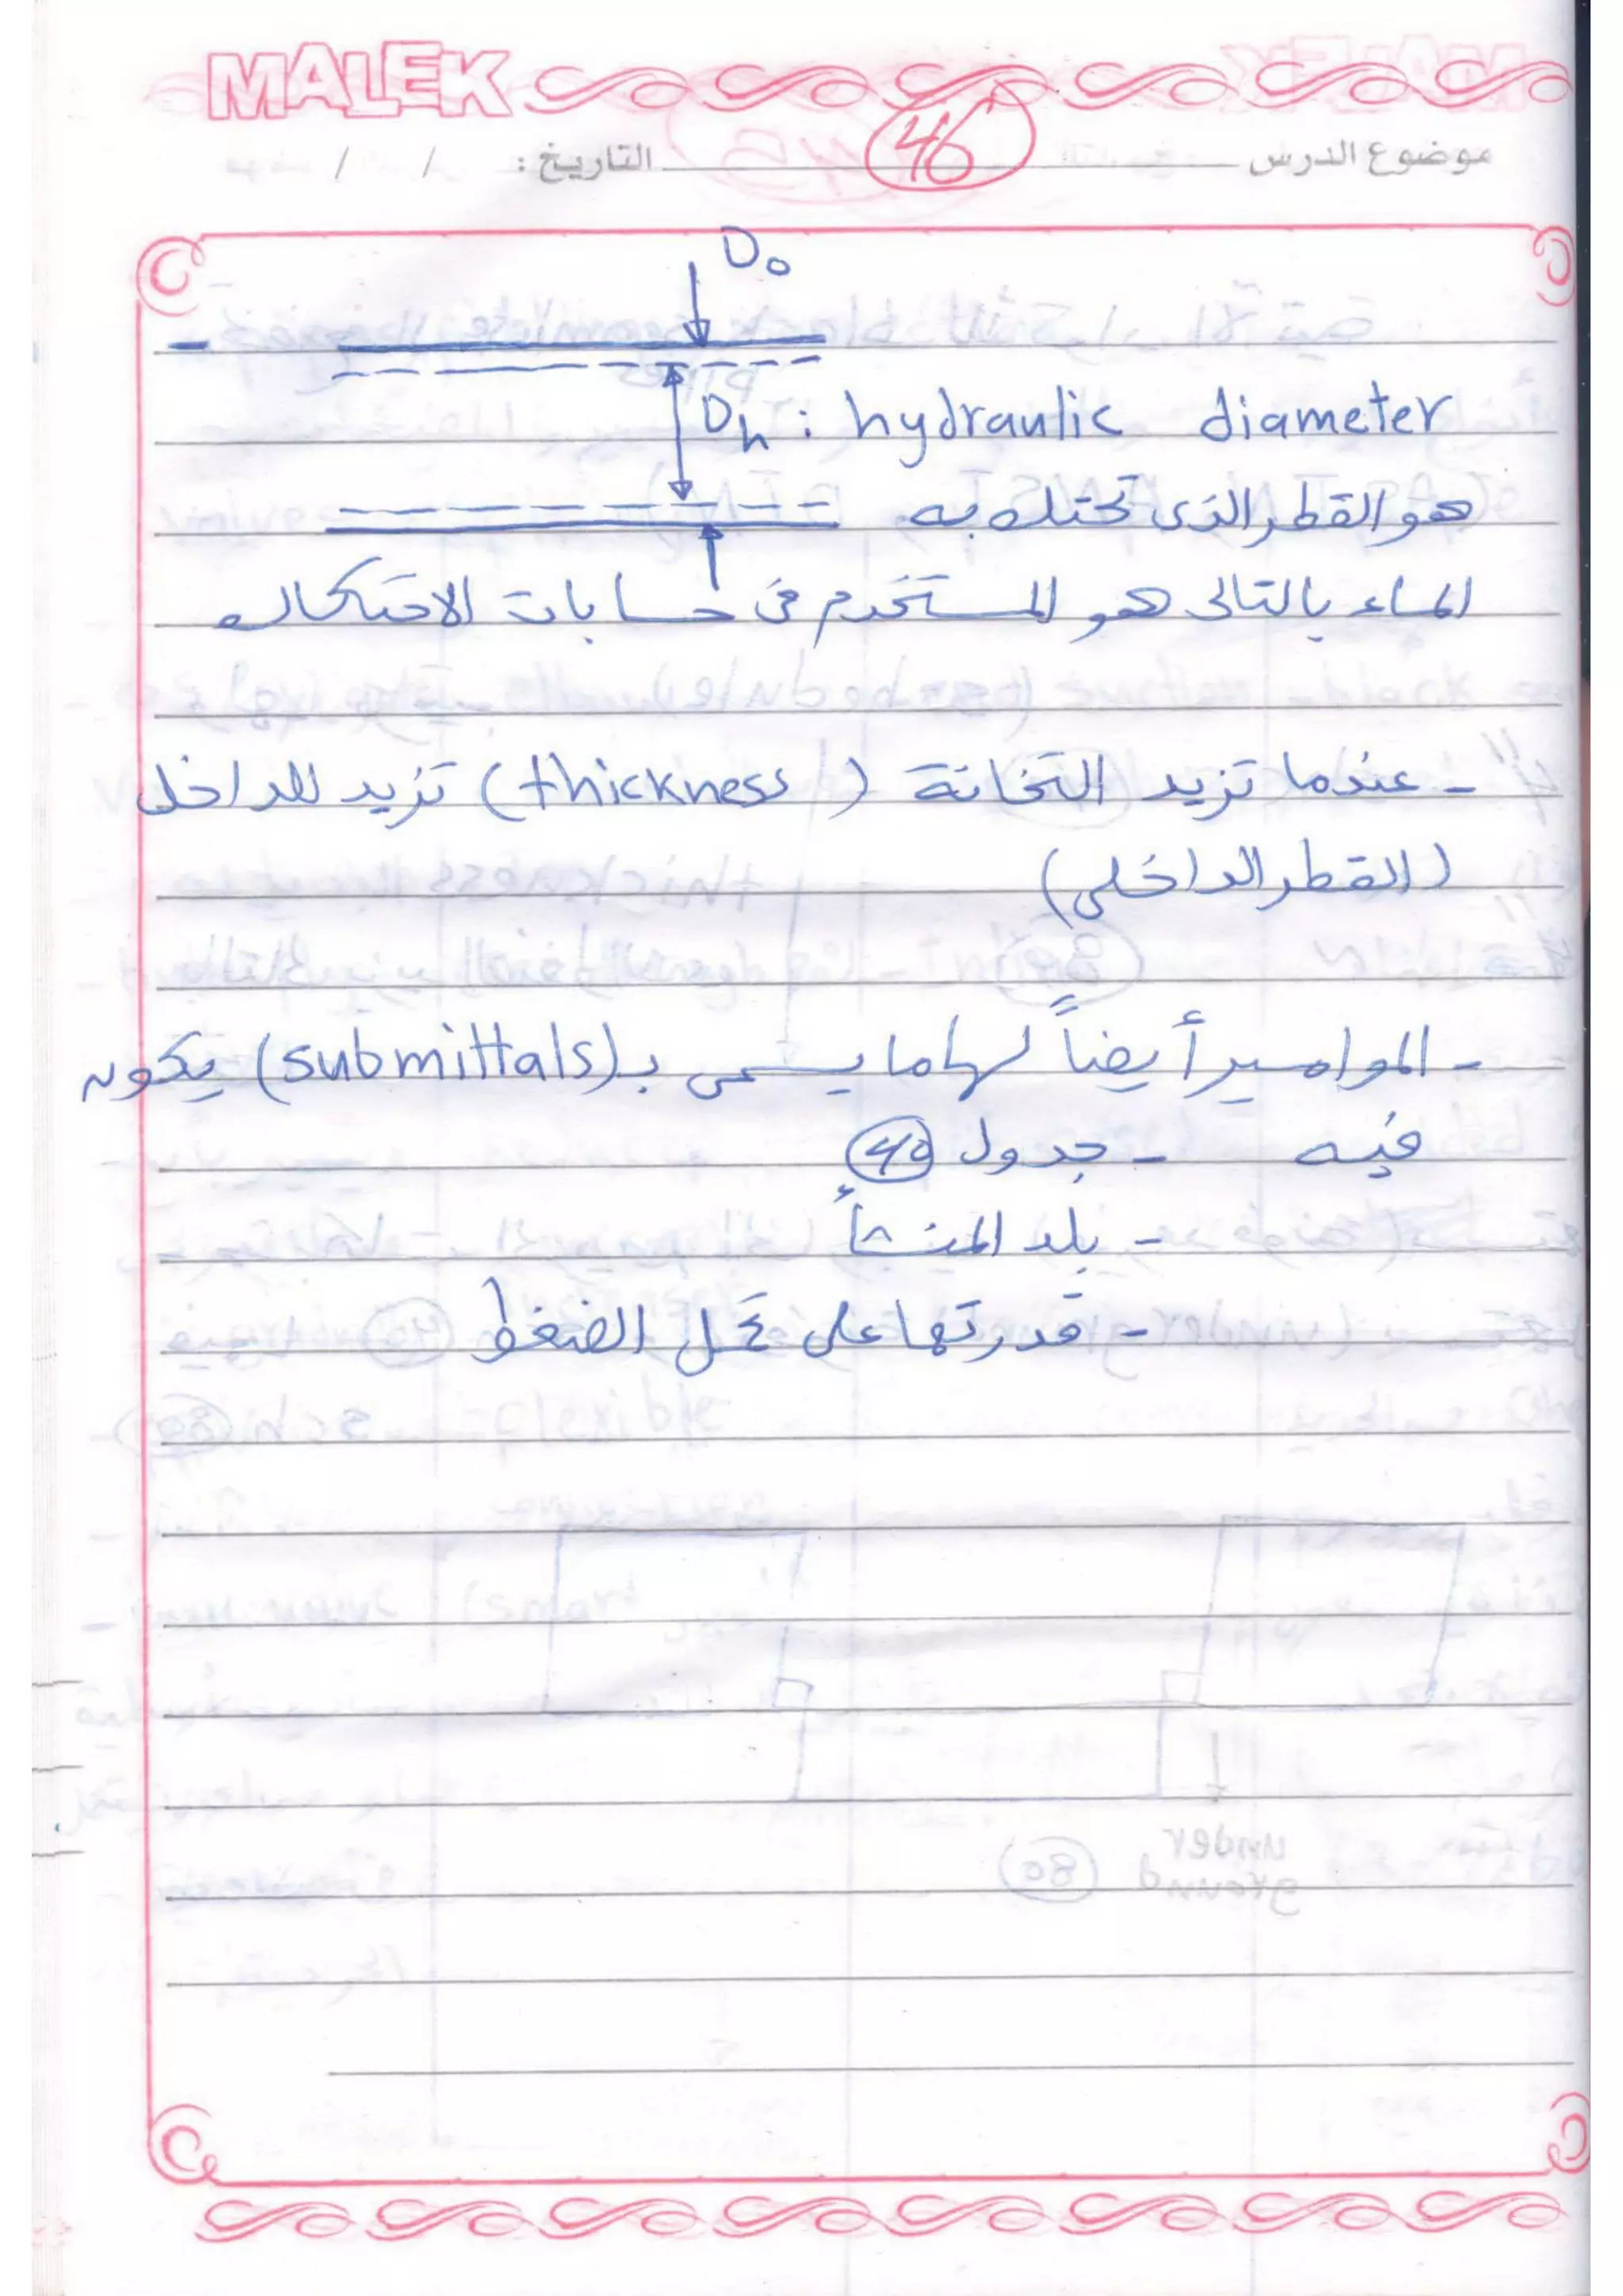 MALEK
موضوع الدرس 46 التاريخ: / /
Do
Dh : hydraulic diameter
هو القطر الذى تحتك به
الماء بالتالى هو المستخدم فى حسابات الاحتكاك
- عندما تزيد التخانة (thickness) تزيد للداخل
(القطر الداخلى)
- المواسير أيضاً لها ما يسمى بـ (submittals) يكون
فيه - جدول 40
- بلد المنشأ
- قدرتها على تحمل الضغط